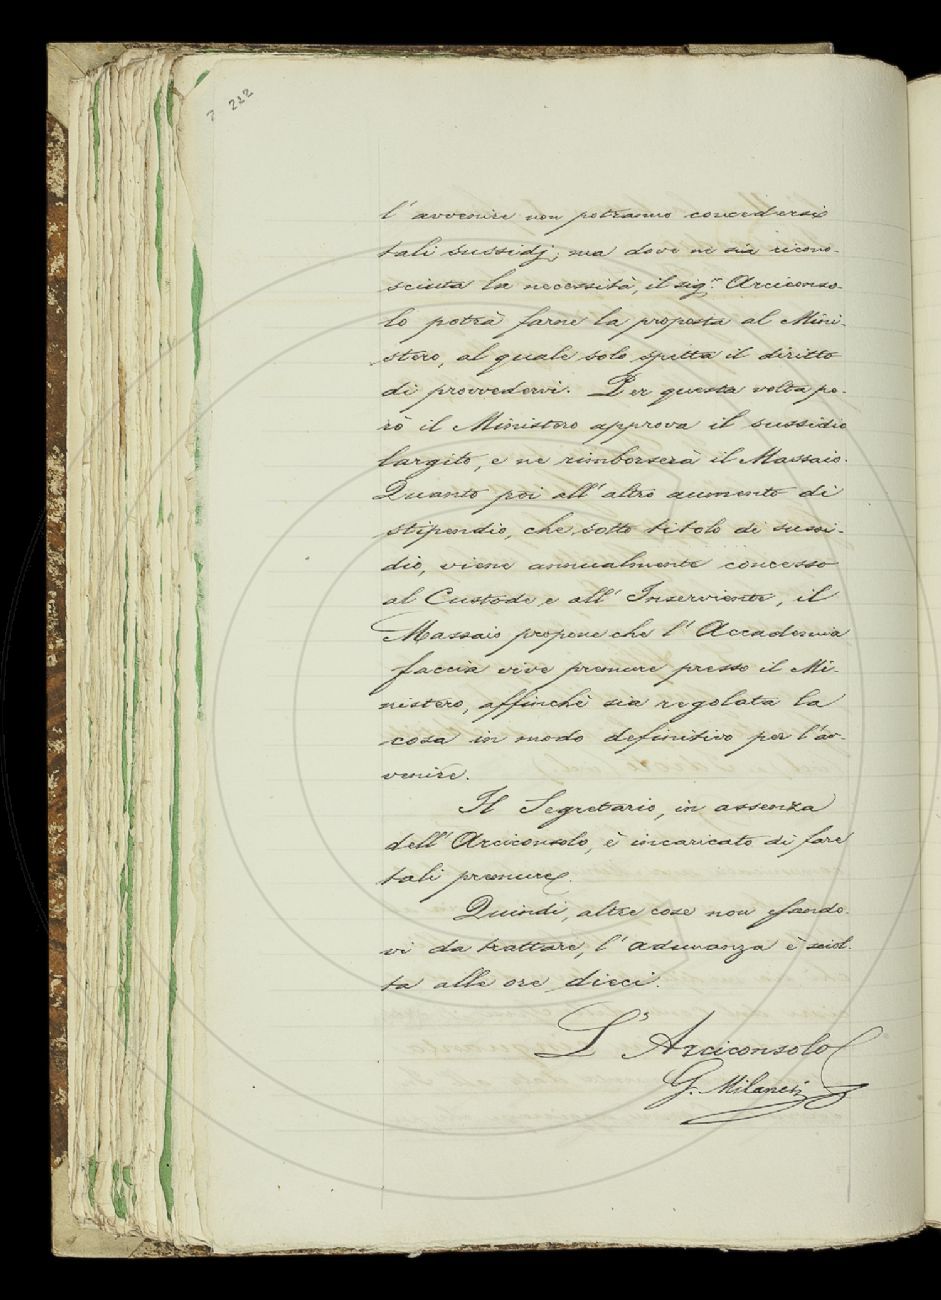 222
l' avvenire non potranno concedersi
tali sussidj, ma dove ne sia ricono-
sciuta la necessità, il sigr. Arciconso-
lo potrà farne la proposta al Mini-
stero, al quale solo spetta il diritto
di provvedervi. Per questa volta pe-
rò il Ministero approva il sussidio
largito, e ne rimborserà il Massaio.
Quanto poi all' altro aumento di
stipendio, che sotto titolo di sussi-
dio, viene annualmente concesso
al Custode e all' Inserviente, il
Massaio propone che l' Accademia
faccia vive premure presso il Mi-
nistero, affinchè sia regolata la
cosa in modo definitivo per l' av-
venire.
Il Segretario, in assenza
dell' Arciconsolo, è incaricato di fare
tali premure.
Quindi, altre cose non essendo-
vi da trattare, l' adunanza è sciol-
ta alle ore dieci.
L' Arciconsolo
G. Milanesi